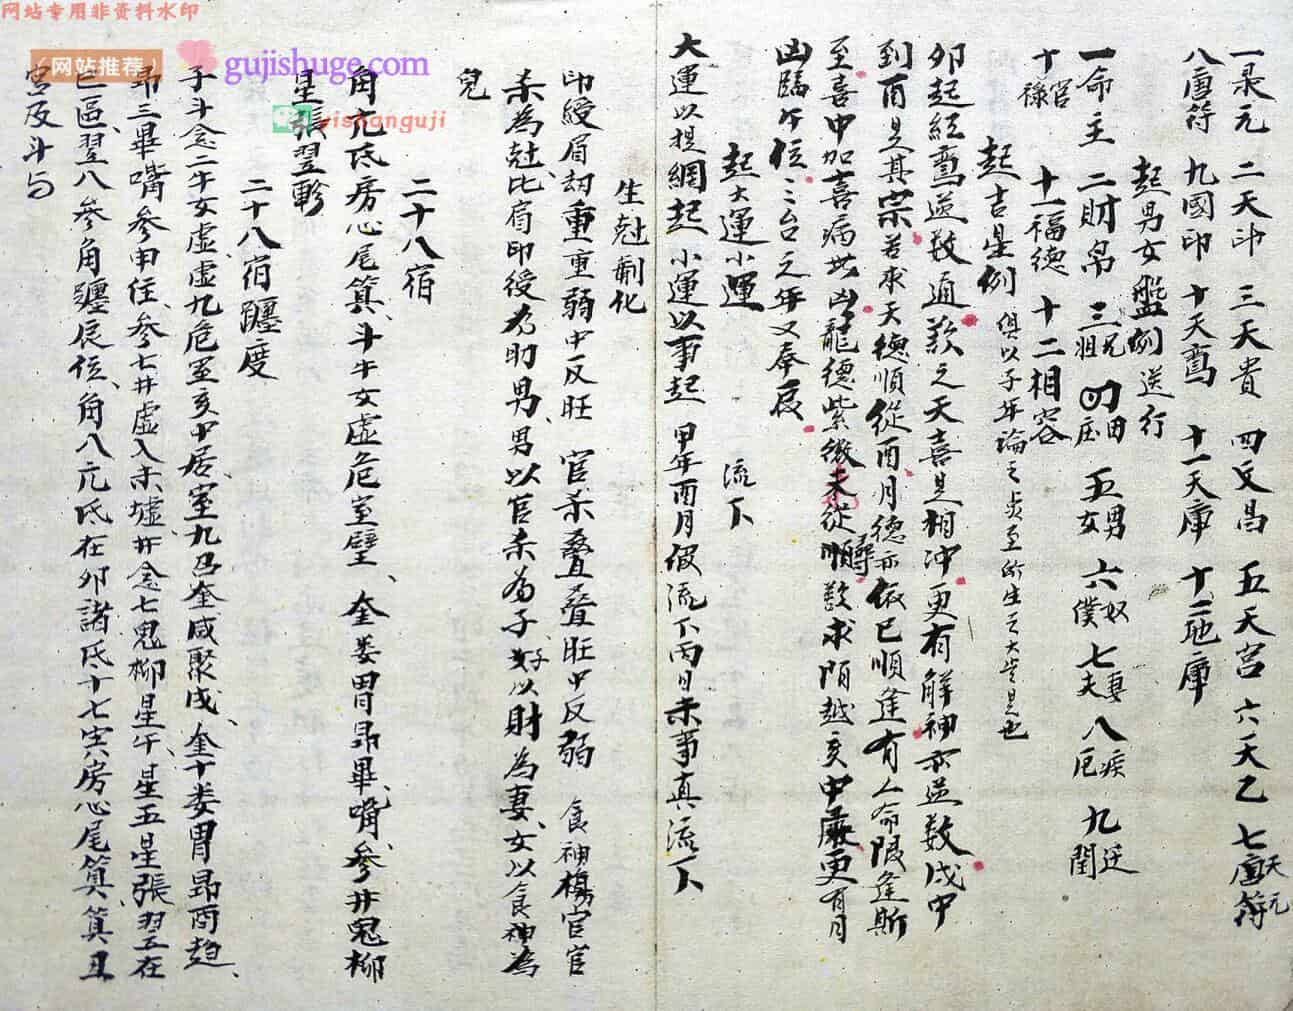 网站专用非资料水印
（网站推荐）
gujishuge.com
yishanguji
一录元 二天印 三天貴 四文昌 五天宫 六天乙 七天元
八唐符 九國印 十天馬 十一天庫 十二地庫
起男女盤例 逆行
一命主 二財帛 三兄姐 四田 五男女 六奴僕 七妻夫 八疾厄 九迁
十官禄 十一福德 十二相容
起吉星例 俱以子年論之
卯起紅鸞逆数通 歎之天喜是相冲 更有解神亦逆数 戌中
到酉是其宗 若求天德順從酉 月德亦依巳順逢 有人命限逢斯
至 喜中加喜病出凶 龍德紫微未從順数求 陌越亥中 更有月
凶臨午位 三台之年又奉辰
起大運小運 流下
大運以提綱起 小運以事起 甲年酉月假流下丙日未事真流下
生尅制化
印綬眉劫重重弱中反旺 官杀叠叠旺中反弱 食神傷官官
杀為尅 比肩印绶為助 男男以官杀為子 好以財為妻 女以食神為
兒
二十八宿
角亢氐房心尾箕、斗牛女虚危室壁、奎娄胃昴畢嘴参、井鬼柳
星張翌軫
二十八宿躔度
子斗念二牛女虚、虚九危室亥中居、室九 奎咸聚戌、奎十娄胃昴酉趋、
昴三畢嘴参申住、参七井虚入未墟、井念七鬼柳星午、星五星張翌在
巳區、翌八参角躔辰位、角八亢氐在卯諸 氐十七寅房心尾箕、箕丑
宫反斗与